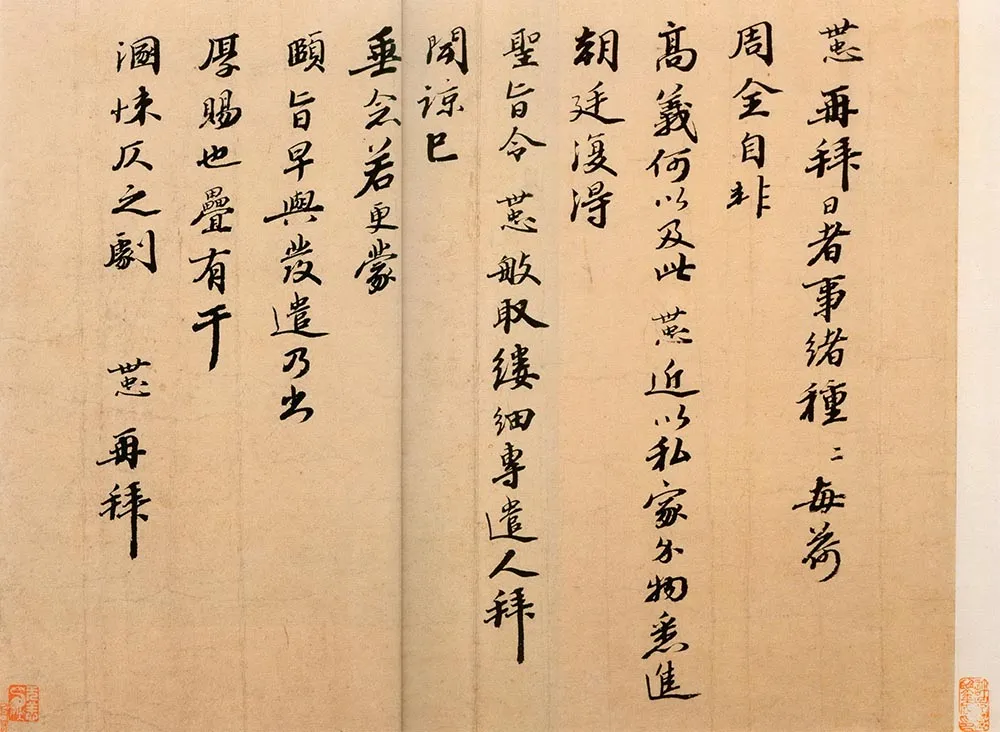 世忠再拜日者事緒種〻每荷
周全自非
高義何以及此世忠近以私家分物悉進
朝廷復得
聖旨令世忠敏取縷細專遣人拜
聞諒已
垂念若更蒙
頤旨早與發遣乃出
厚賜也疊有干
溷悚仄之劇 世忠 再拜